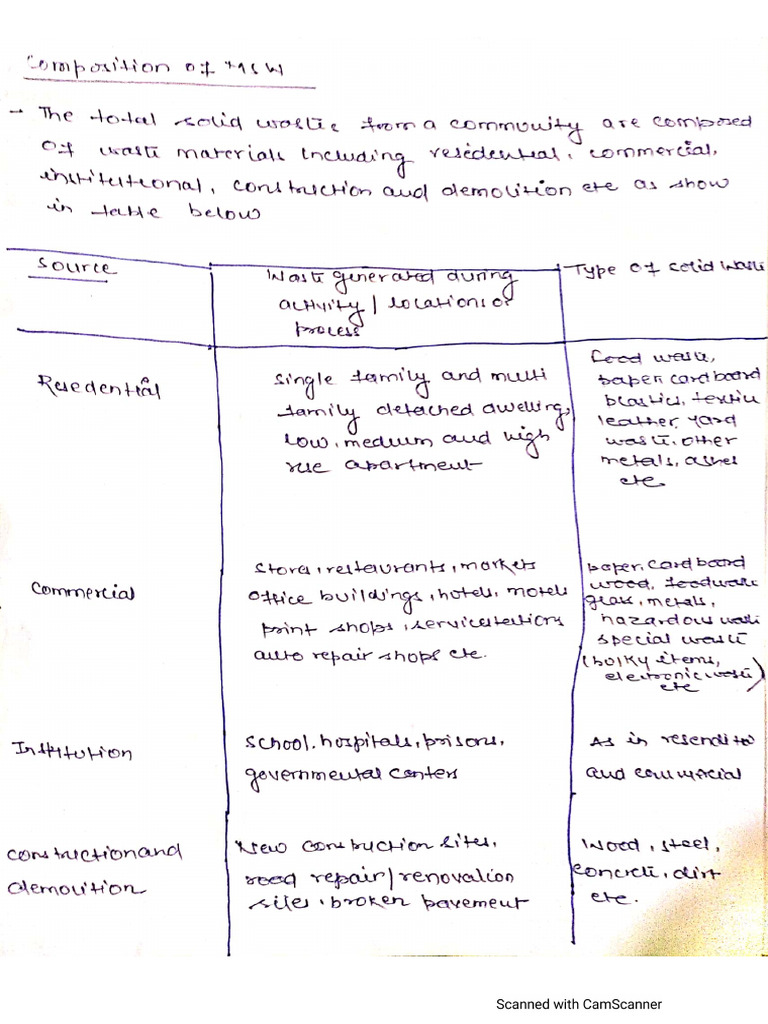 Composition of MSW
- The total solid waste from a community are composed
of waste materials including resedential, commercial,
institutional, construction and demolition etc as show
in table below
Source
Waste generated during
activity / locations or
process
Type of solid waste
Resedential
Single family and multi
family detached dwelling,
low, medium and high
rise apartment
food waste,
paper, cardboard
plastics, textile
leather, yard
waste, other
metals, ashes
etc
Commercial
Stores, restaurants, markets
office buildings, hotels, motels
print shops, service stations
auto repair shops etc.
paper, cardboard
wood, food waste
glass, metals,
hazardous waste
special waste
(bulky items,
electronic waste)
etc
Institution
School, hospitals, prisons,
governmental centers
As in
and commercial
construction and
demolition
New construction sites,
road repair/renovation
sites, broken pavement
Wood, steel,
concrete, dirt
etc.
Scanned with CamScanner